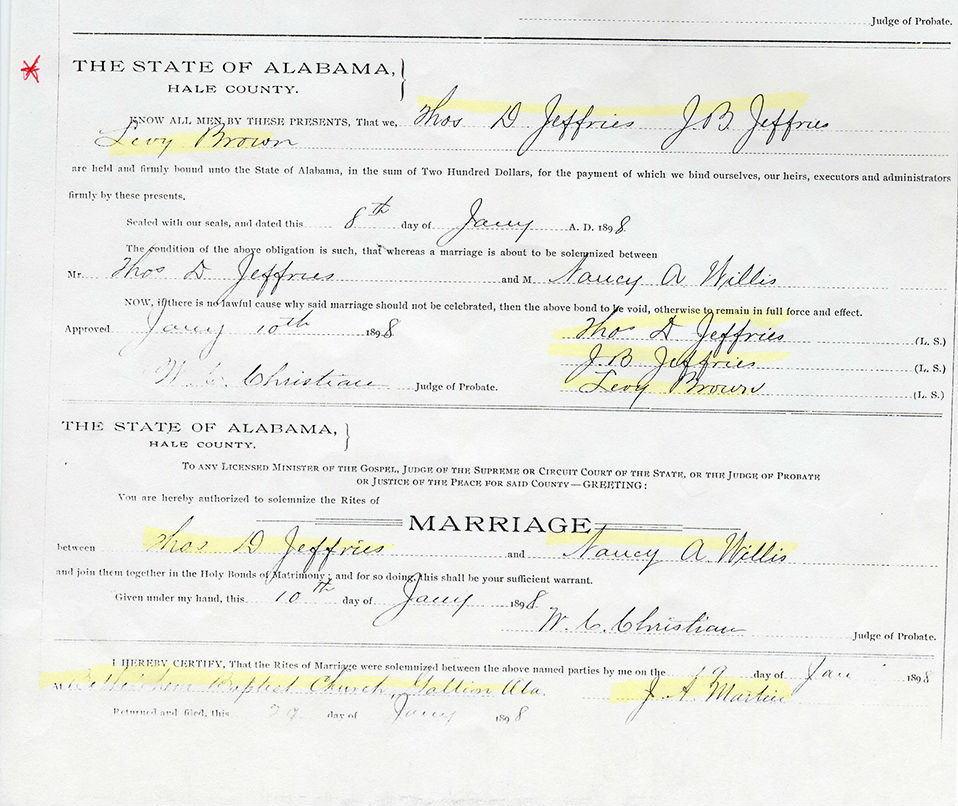 Judge of Probate.
THE STATE OF ALABAMA,
HALE COUNTY.
KNOW ALL MEN BY THESE PRESENTS, That we, Thos D Jeffries J. B. Jeffries
Levy Brown
are held and firmly bound unto the State of Alabama, in the sum of Two Hundred Dollars, for the payment of which we bind ourselves, our heirs, executors and administrators
firmly by these presents.
Sealed with our seals, and dated this 8th day of Jany A. D. 1898
The condition of the above obligation is such, that whereas a marriage is about to be solemnized between
Mr. Thos D Jeffries and M Nancy A Willis
NOW, if there is no lawful cause why said marriage should not be celebrated, then the above bond to be void, otherwise to remain in full force and effect.
Approved Jany 10th 1898 Thos D Jeffries (L. S.)
J. B Jeffries (L. S.)
W. C. Christian Judge of Probate. Levy Brown (L. S.)
THE STATE OF ALABAMA,
HALE COUNTY.
TO ANY LICENSED MINISTER OF THE GOSPEL, JUDGE OF THE SUPREME OR CIRCUIT COURT OF THE STATE, OR THE JUDGE OF PROBATE
OR JUSTICE OF THE PEACE FOR SAID COUNTY—GREETING:
You are hereby authorized to solemnize the Rites of
MARRIAGE
between Thos D Jeffries and Nancy A. Willis
and join them together in the Holy Bonds of Matrimony; and for so doing, this shall be your sufficient warrant.
Given under my hand, this 10th day of Jany 1898
W. C. Christian Judge of Probate.
I HEREBY CERTIFY, That the Rites of Marriage were solemnized between the above named parties by me on the day of Jan 1898
At Baptist Church, Gallion Ala. J. A Martin
Returned and filed, this day of Jany 1898